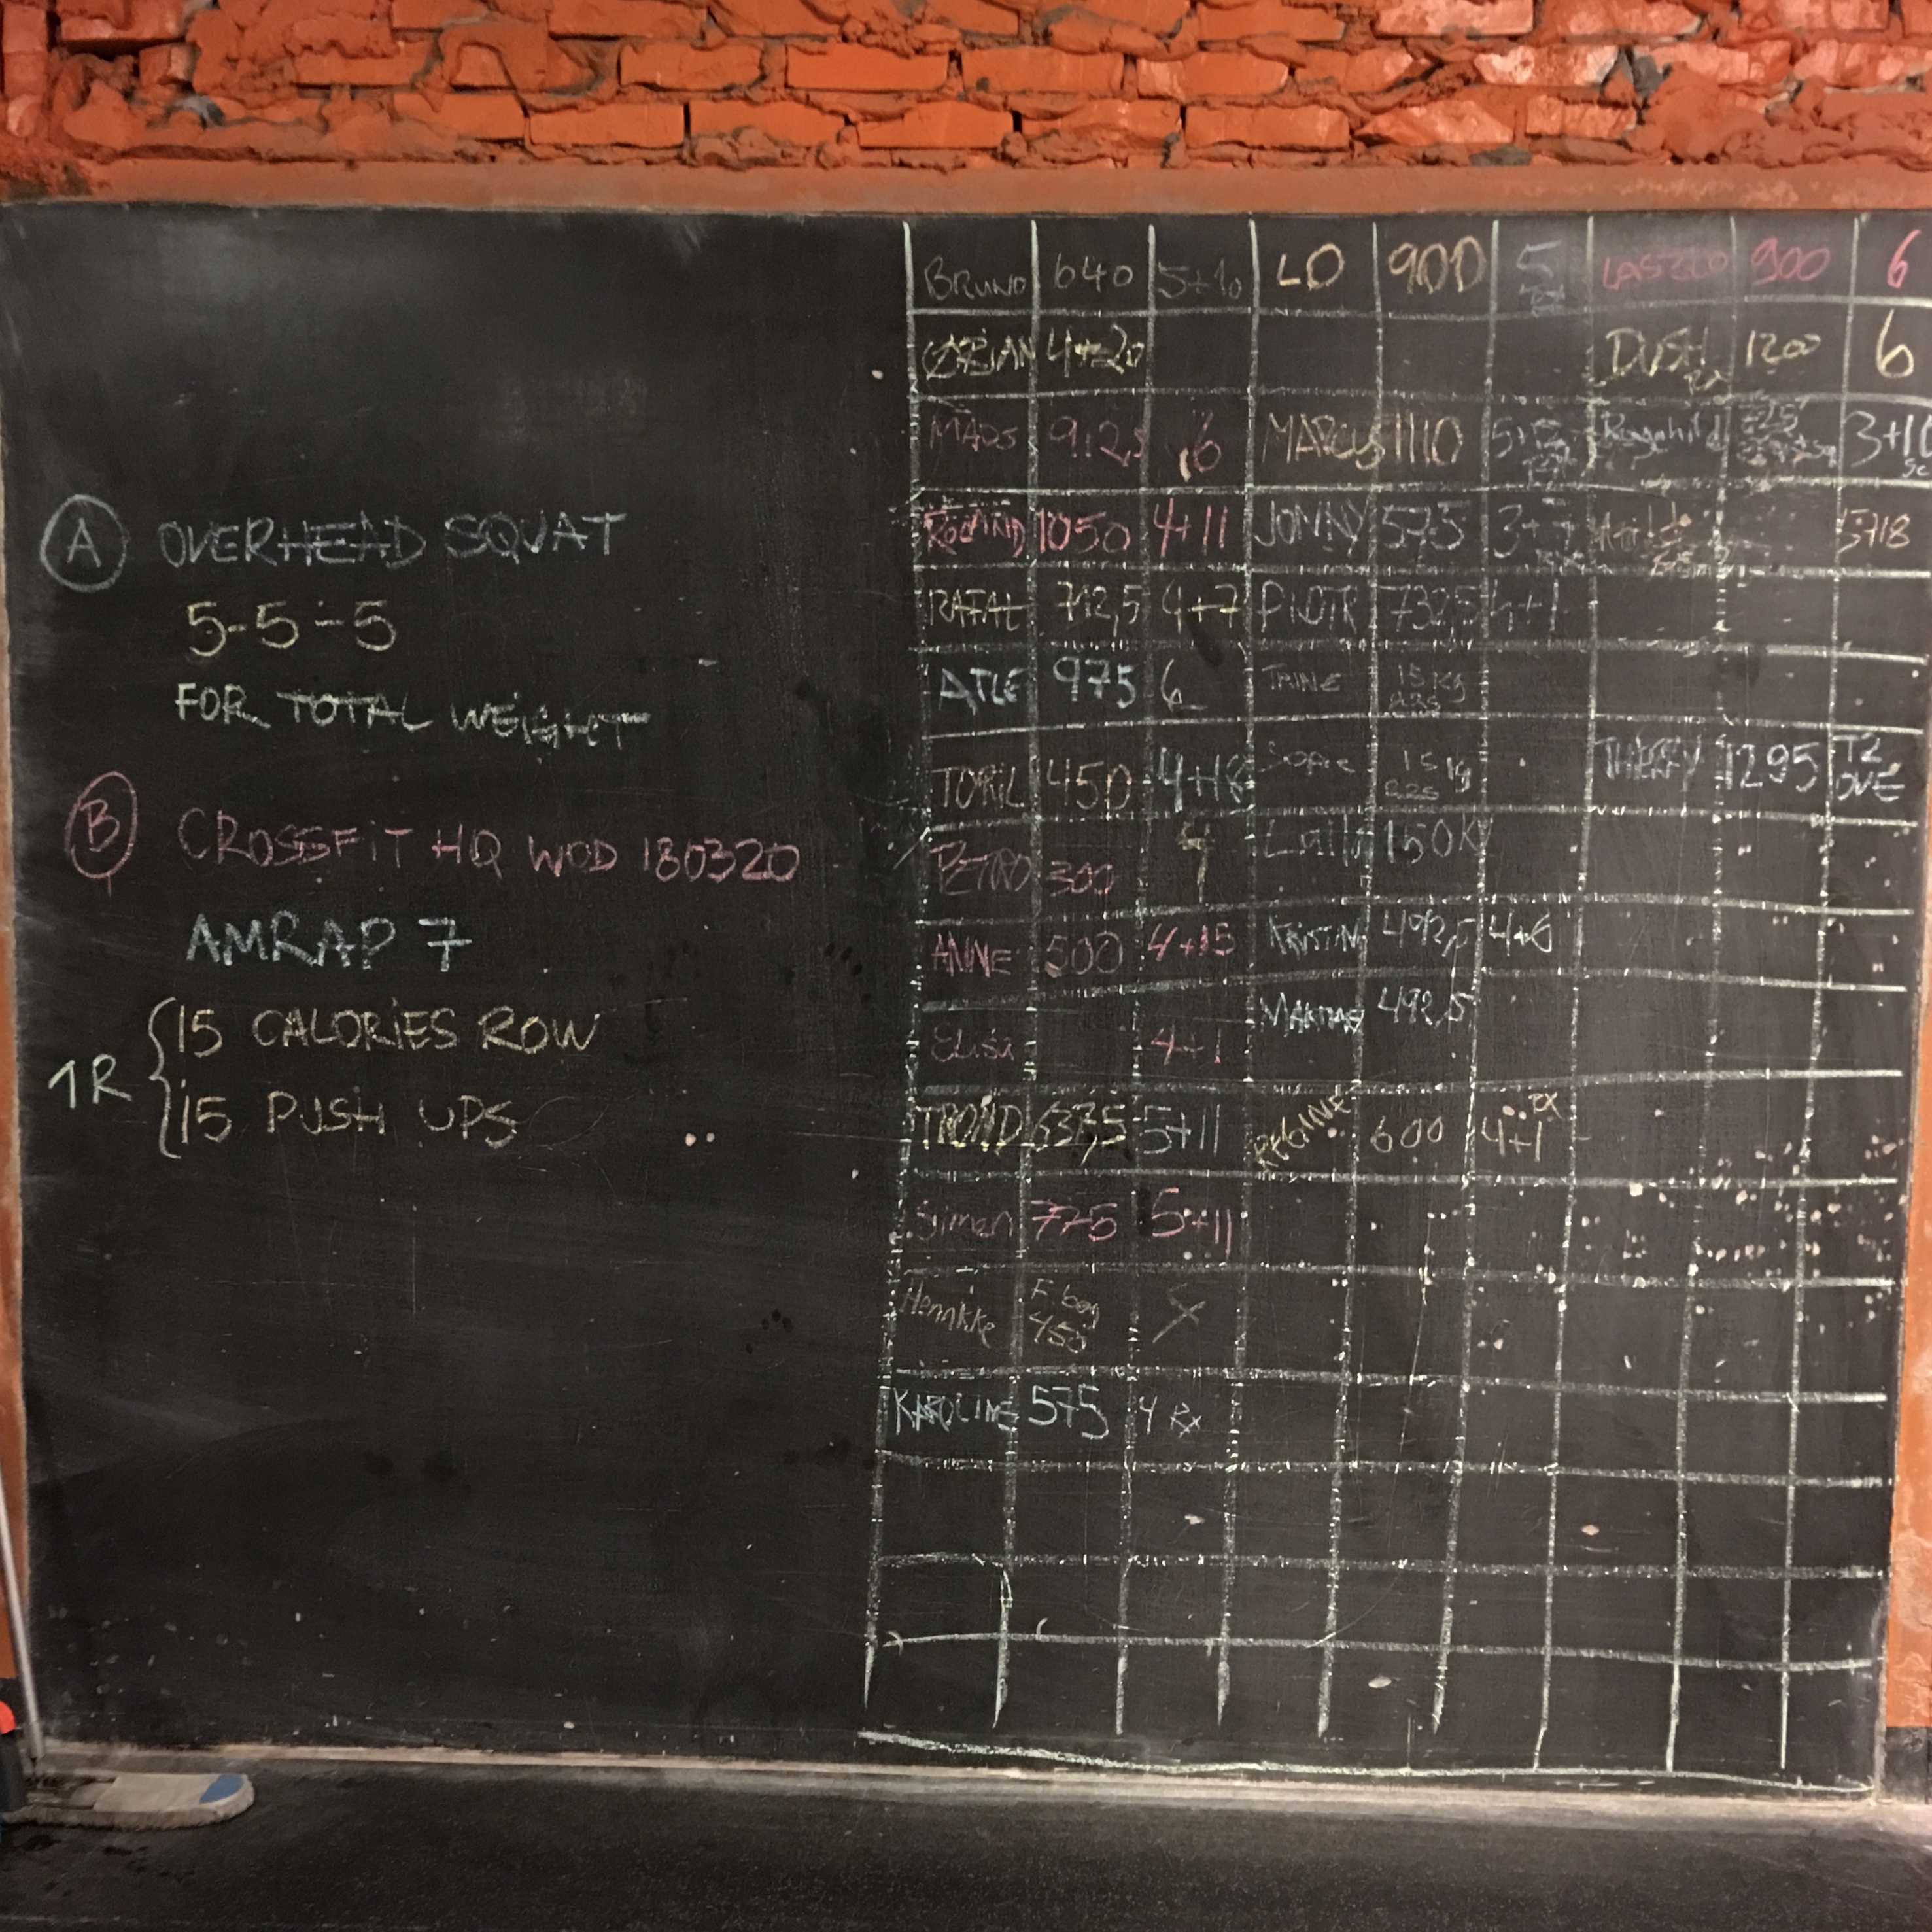 A OVERHEAD SQUAT
5-5-5
FOR TOTAL WEIGHT
B CROSSFIT HQ WOD 180320
AMRAP 7
1R
15 CALORIES ROW
15 PUSH UPS
BRUNO 640 5+10 LD 900 5 LASZLO 900 6
ØRJAN 4+20 DUSH 1200 6
MADS 912,5 6 MARCUS 1110 Ragnhild 3+10
ROLAND 1050 4+11 JONNY 575
RAFAL 712,5 4+7 PIOTR 732,5 4+1
ATLE 975 6 TRINE 15 Kg
TORIL 450 4+18 15 kg THIERRY 1295
PETRO 300 4 150K
ANNE 500 4+15 KRISTINE 492,5 4+6
Elisa 4+1 492,5
TROND 637,5 5+11 REGINE 600 4+1 RX
Simen 775 5+11
Henrikke 450
KAROLINE 575 4 Rx